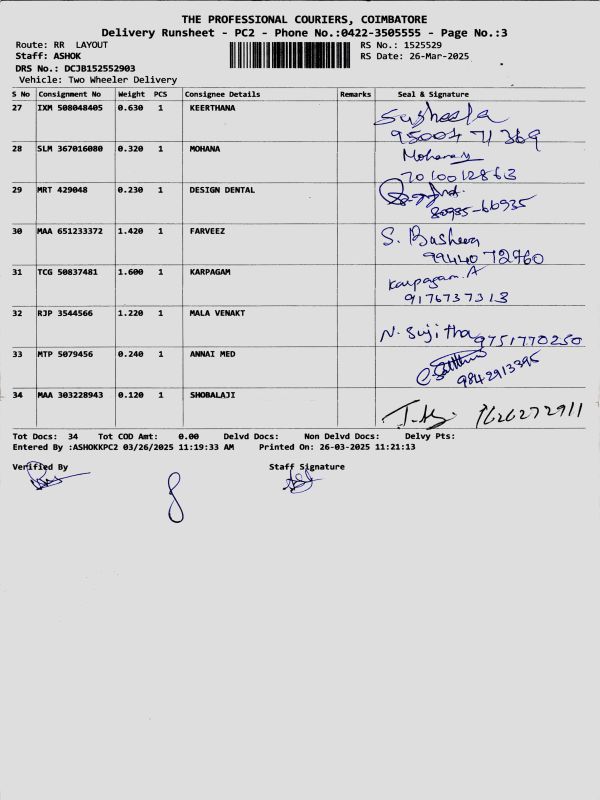 THE PROFESSIONAL COURIERS, COIMBATORE
Delivery Runsheet - PC2 - Phone No.:0422-3505555 - Page No.:3
Route: RR LAYOUT RS No.: 1525529
Staff: ASHOK RS Date: 26-Mar-2025
DRS No.: DCJB152552903
Vehicle: Two Wheeler Delivery
S No Consignment No Weight PCS Consignee Details Remarks Seal & Signature
27 IXM 508048405 0.630 1 KEERTHANA Susheela
95004 71369
28 SLM 367016080 0.320 1 MOHANA Mohana
7010012863
29 MRT 429048 0.230 1 DESIGN DENTAL
80985-66935
30 MAA 651233372 1.420 1 FARVEEZ S. Basheer
99440 72960
31 TCG 50837481 1.600 1 KARPAGAM Karpagam. A
9176737313
32 RJP 3544566 1.220 1 MALA VENAKT N. Sujitha 9751770250
33 MTP 5079456 0.240 1 ANNAI MED
9842913395
34 MAA 303228943 0.120 1 SHOBALAJI 7626272911
Tot Docs: 34 Tot COD Amt: 0.00 Delvd Docs: Non Delvd Docs: Delvy Pts:
Entered By :ASHOKKPC2 03/26/2025 11:19:33 AM Printed On: 26-03-2025 11:21:13
Verified By Staff Signature